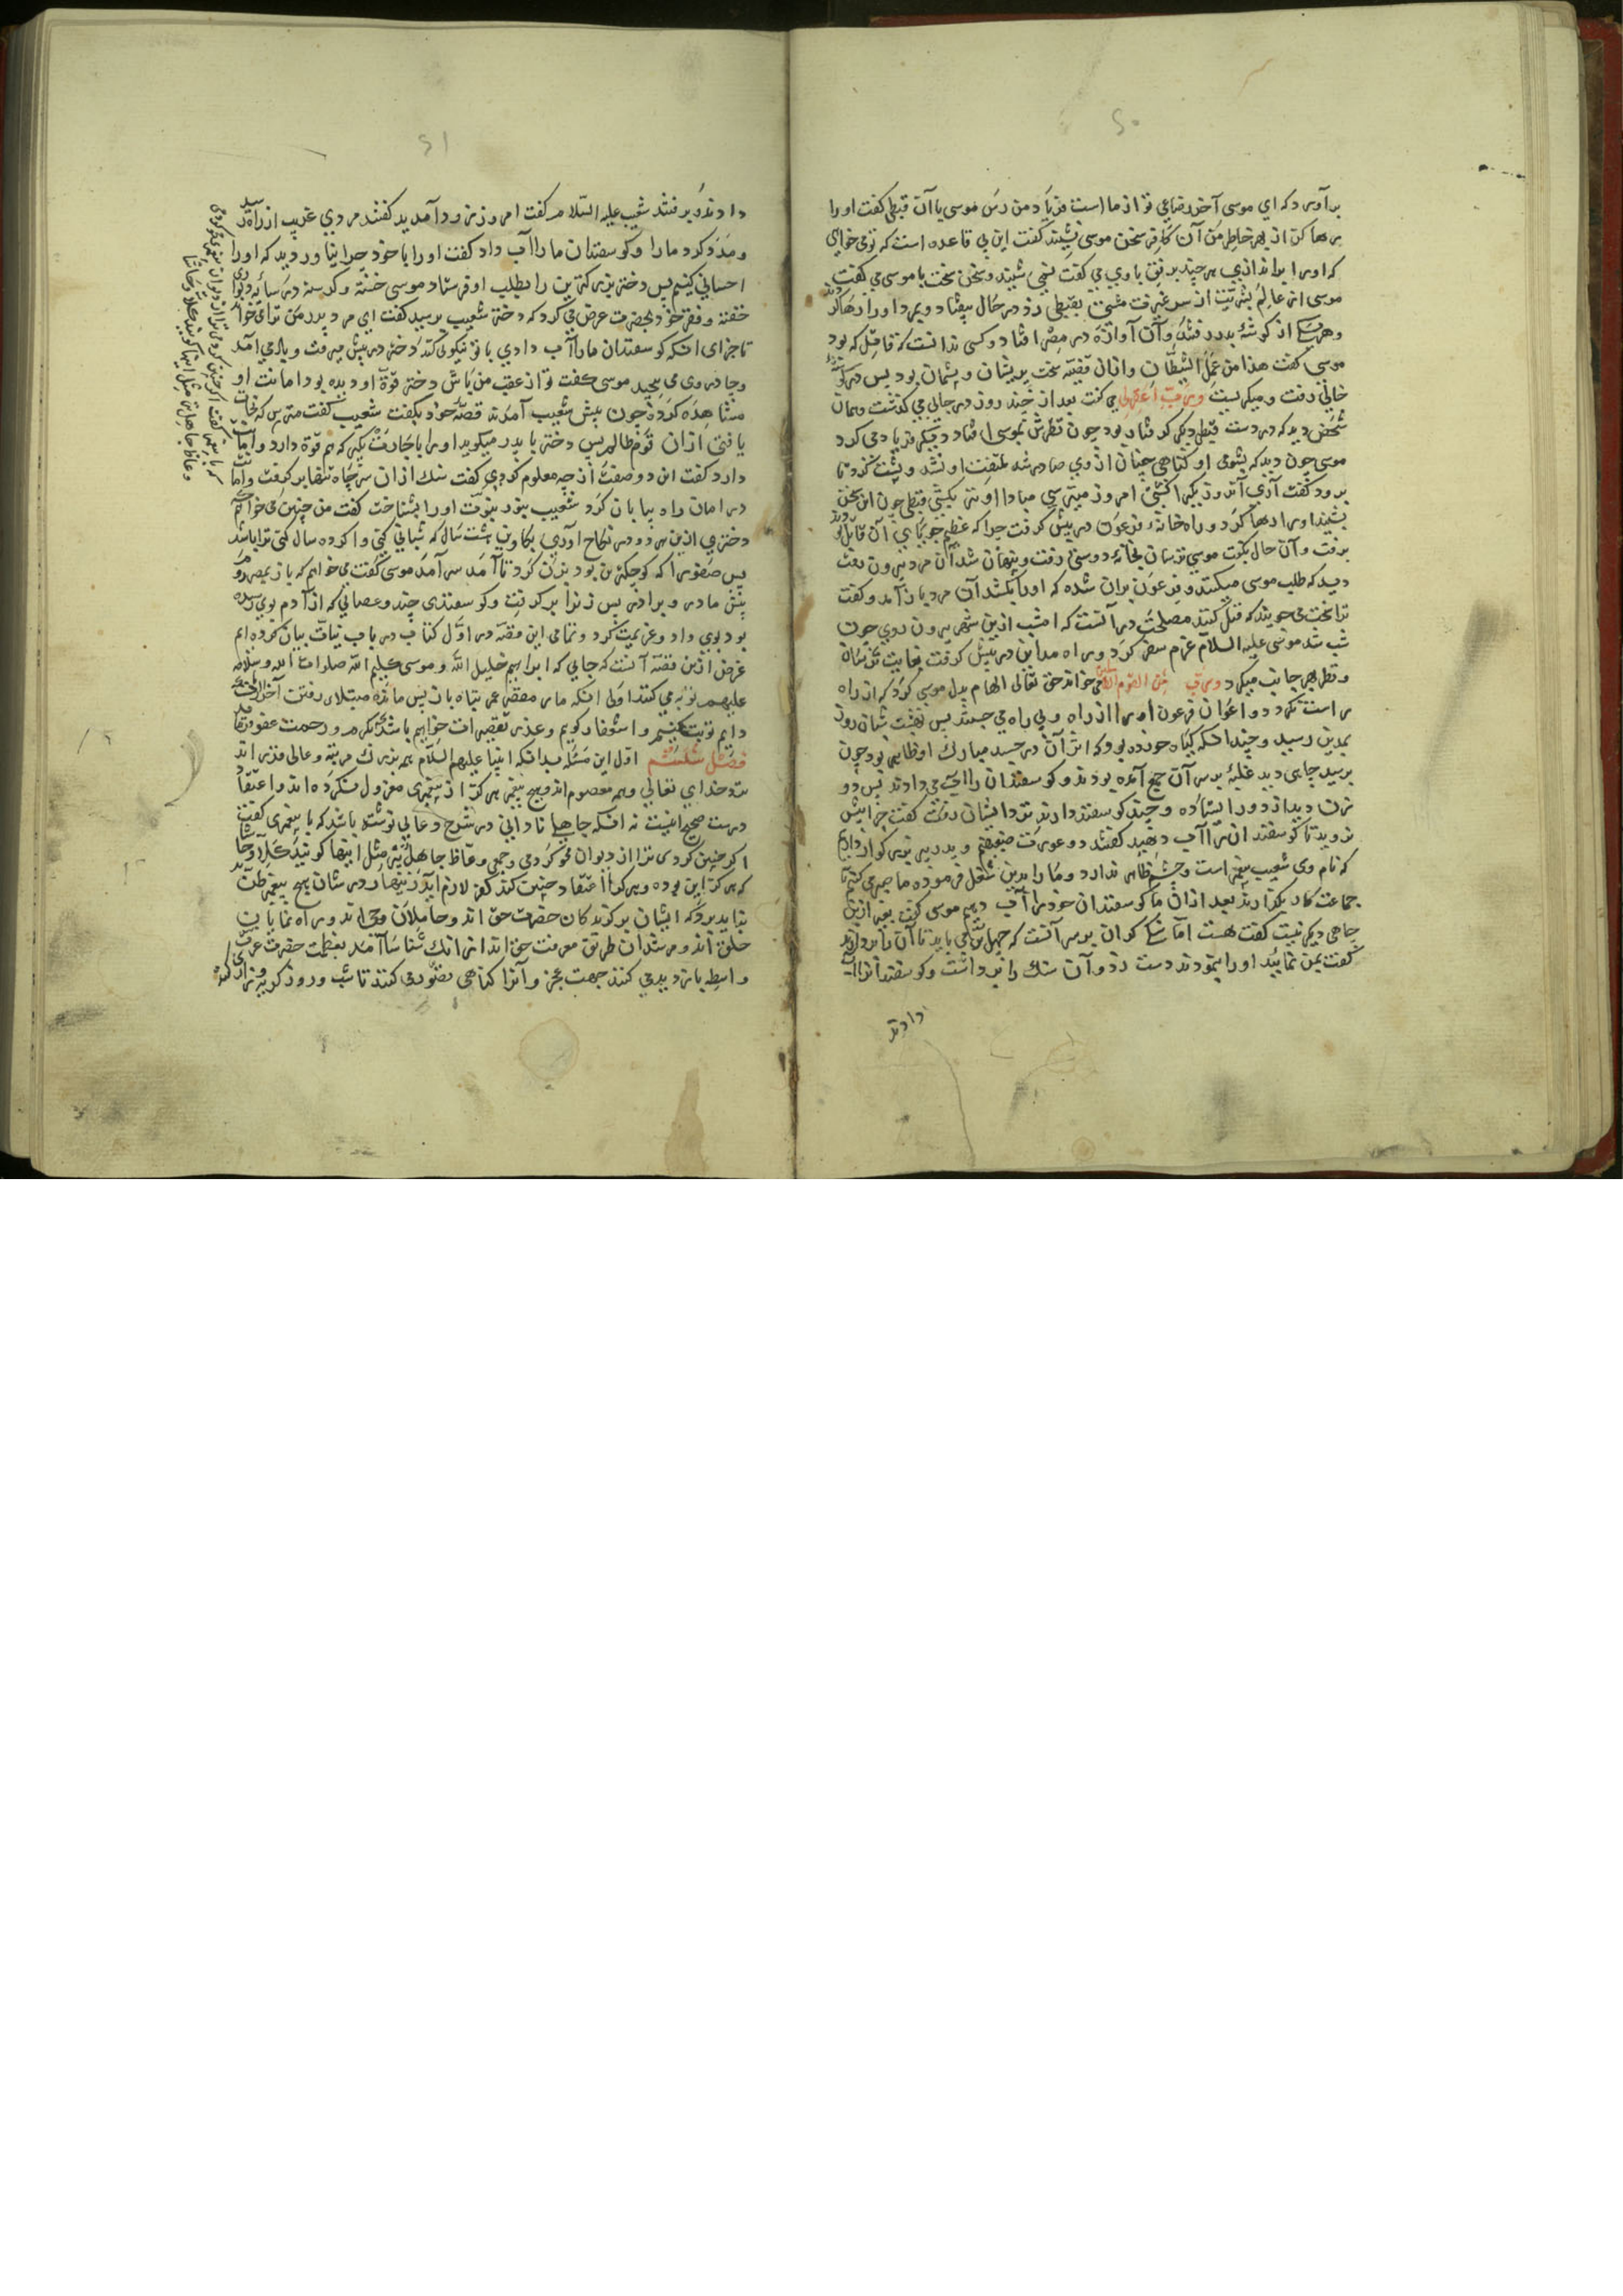 ۶۰
برآورد که ای موسی آخر رضا می تو از ما است فریاد من رس موسی با آن قبطی گفت او را
رها کن از بهر خاطر من آن کافر سخن موسی نشنید گفت این بی قاعده است که تو می خواهی
که او را براندازی هر چند برفق با وی می گفت نمی شنید و سخن سخت با موسی می گفت
موسی از عالم بشریت از سر غیرت مشتی بقبطی زد در حال بیفتاد و بمرد او را رها کرد
و هر یک از گوشه بدر رفتند و آن آوازه در مصر افتاد و کسی ندانست که قاتل که بود
موسی گفت هذا من عمل الشیطان و از آن قضیه سخت پریشان و پشیمان بود پس در گوشه
خالی رفت و میگریست و رب اغفرلی می گفت بعد از چند روز در جایی می گذشت و همان
شخص دید که در دست قبطی دیگر گرفتار بود چون نظرش بموسی افتاد دیگر فریاد می کرد
موسی چون دید که بشومی او گناهی چنان از وی صادر شد ملتفت او نشد و پشت کرد تا
برود گفت آری آن روز یکی را کشتی امروز میترسی مبادا او نیز بکشی قبطی چون این سخن
بشنید او را رها کرد و راه خانه فرعون در پیش گرفت چرا که عظیم جویای آن قاتل بودند
برفت و آن حال بگفت موسی ترسان بخانه دوستی رفت و پنهان شد آن مرد بیرون رفت
دید که طلب موسی میکنند و فرعون بران شده که او را بکشد آن مرد باز آمد و گفت
ترا سخت می جویند که قتل کنند مصلحت در آنست که امشب ازین شهر بیرون روی چون
شب شد موسی علیه السلام عزم سفر کرد و راه مداین در پیش گرفت بغایت ترسان
و نظر بهر جانب میکرد و رب نجنی من القوم الظالمین می خواند حق تعالی الهام بدل موسی کرد که از راه
راست نگردد و اعوان فرعون او را از راه و بی راه می جستند پس بهشت شبان روز
بمدین رسید و چندانکه گیاه خورده بود که اثر آن در جسد مبارک او ظاهر بود چون
برسید چاهی دید غلبه بر سر آن جمع آمده بودند و گوسفندان را آب می دادند پس دو
زن دید از دور ایستاده و چند گوسفند دارند نزد ایشان رفت گفت چرا پیش
نروید تا گوسفندان را آب دهید گفتند دو عورت ضعیفیم و پدر پیر بزرگوار داریم
که نام وی شعیب پیغمبر است و چشم ظاهر ندارد و ما را بدین شغل فرموده ما صبر می کنیم تا
جماعت کار بگذارند بعد از آن ما گوسفندان خود را آب دهیم موسی گفت بغیر ازین
چاهی دیگر نیست گفت هست اما سنگی گران بر سر آنست که چهل تن می باید تا آن را بردارند
گفت بمن نمایید او را بنمودند دست زد و آن سنک را برداشت و گوسفندانرا آب
دادند
۶۱
دادند و برفتند شعیب علیه السلام گفت امروز زود آمدید گفتند مردی غریب از راه آمد
و مدد کرد ما را و گوسفندان ما را آب داد گفت او را با خود چرا نیاوردید که او را
احسانی کنیم پس دختر بزرگترین را بطلب او فرستاد موسی خسته و گرسنه در سایه دیواری
خفته و فقر خود بحضرت عرض می کرد که دختر شعیب برسید گفت ای مرد پدر من ترا می خواند
تا جزای انکه گوسفندان ما را آب دادی با تو نیکویی کند دختر در پیش میرفت و باد می آمد
و چادر وی می پیچید موسی گفت تو از عقب من باش دختر قوة او دیده بود امانت او
مشاهده کرده چون پیش شعیب آمدند قصه خود بگفت شعیب گفت مترس که نجات
یافتی از آن قوم ظالم پس دختر با پدر میگوید او را باجارت بگیر که هم قوة دارد و امانت
دارد گفت این دو صفت از چه معلوم کردی گفت سنک از آن سر چاه تنها بر گرفت و امانت
در امان راه بیابان کرد شعیب بنور نبوت او را بشناخت گفت من چنین می خواهم که
دختری ازین هر دو در نکاح آوری بکاوین هشت سال که شبانی کنی و اگر ده سال کنی ترا باشد
پس صفورا که کوچکترین بود بزن کرد تا آمد سر آمد موسی گفت می خواهم که باز بمصر روم
پیش مادر و برادر پس زنرا برگرفت و گوسفندی چند و عصایی که از آدم بوی رسیده
بود بوی داد و عزیمت کرد و تمامی این قصه در اول کتاب در باب نیات بیان کرده ایم
غرض ازین قصه آنست که جایی که ابراهیم خلیل الله و موسی کلیم الله صلوات الله و سلامه
علیهم توبه می کنند اولی انکه ما مقصر عمر بتباه باز پس مانده مبتلای رفتن آخر الزمان
دایم توبت کنیم و استغفار گویم و عذر تقصیرات خواهیم باشد که بکرم و رحمت عفو فرماید
فصل ششم اول این مسئله بدانکه انبیا علیهم السلام همه بزرگ مرتبه و عالی قدر اند
نزد خدای تعالی و همه معصوم اند و هیچ پیغمبر هرگز از پیغمبری معزول نکرده اند و اعتقاد
درست صحیح اینست نه انکه جاهلی نادانی در شرح دعایی نوشته باشد که با پیغمبری گفت
اگر چنین کردی ترا از دیوان محو کردمی و جمعی وعاظ جاهل نیز مثل اینها گویند کلا و حاشا
که هرگز این بوده و هر که را اعتقاد چنین کند کفر لازم آید زینهار در شان هیچ پیغمبر ظن
بد نبرد که ایشان برگزیدگان حضرت حق اند و حاملان وحی اند و راه نمایان
خلق اند و مرشدان طریق معرفت حق اند از آنک شناسا آمدند بعظمت حضرت عزت
واسطه باز دید می کنند جهت عجز و آنرا گناهی تصور می کنند تا شب و روز گریه و زاری کنند